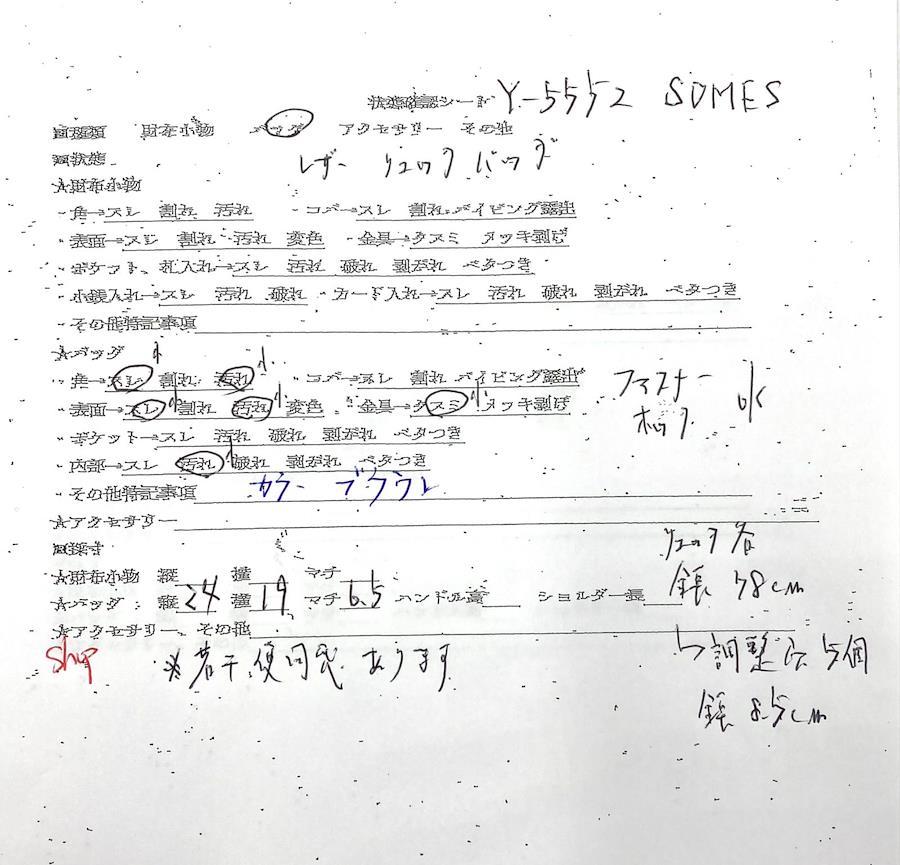 状態確認シート Y-5552 SOMES
□種類 財布小物 バッグ アクセサリー その他
□状態 レザー リュックバッグ
☆財布小物
・角→スレ 割れ 汚れ ・コバ→スレ 割れ パイピング露出
・表面→スレ 割れ 汚れ 変色 ・金具→クスミ メッキ剥げ
・ポケット、札入れ→スレ 汚れ 破れ 剥がれ ベタつき
・小銭入れ→スレ 汚れ 破れ ・カード入れ→スレ 汚れ 破れ 剥がれ ベタつき
・その他特記事項
☆バッグ 小 小
・角→スレ 割れ 汚れ ・コバ→スレ 割れ パイピング露出 ファスナー
・表面→スレ 小 割れ 汚れ 小 変色 ・金具→クスミ 小 メッキ剥げ ホック ok
・ポケット→スレ 汚れ 破れ 剥がれ ベタつき
・内部→スレ 汚れ 小 破れ 剥がれ ベタつき
・その他特記事項 カラー ブラウン
☆アクセサリー
□採寸 リュック
☆財布小物 縦 横 マチ
☆バッグ 縦 24 横 19 マチ 6.5 ハンドル高 ショルダー長 78cm
☆アクセサリー、その他
ship ※若干使用感あります 調整 5個
8.5cm